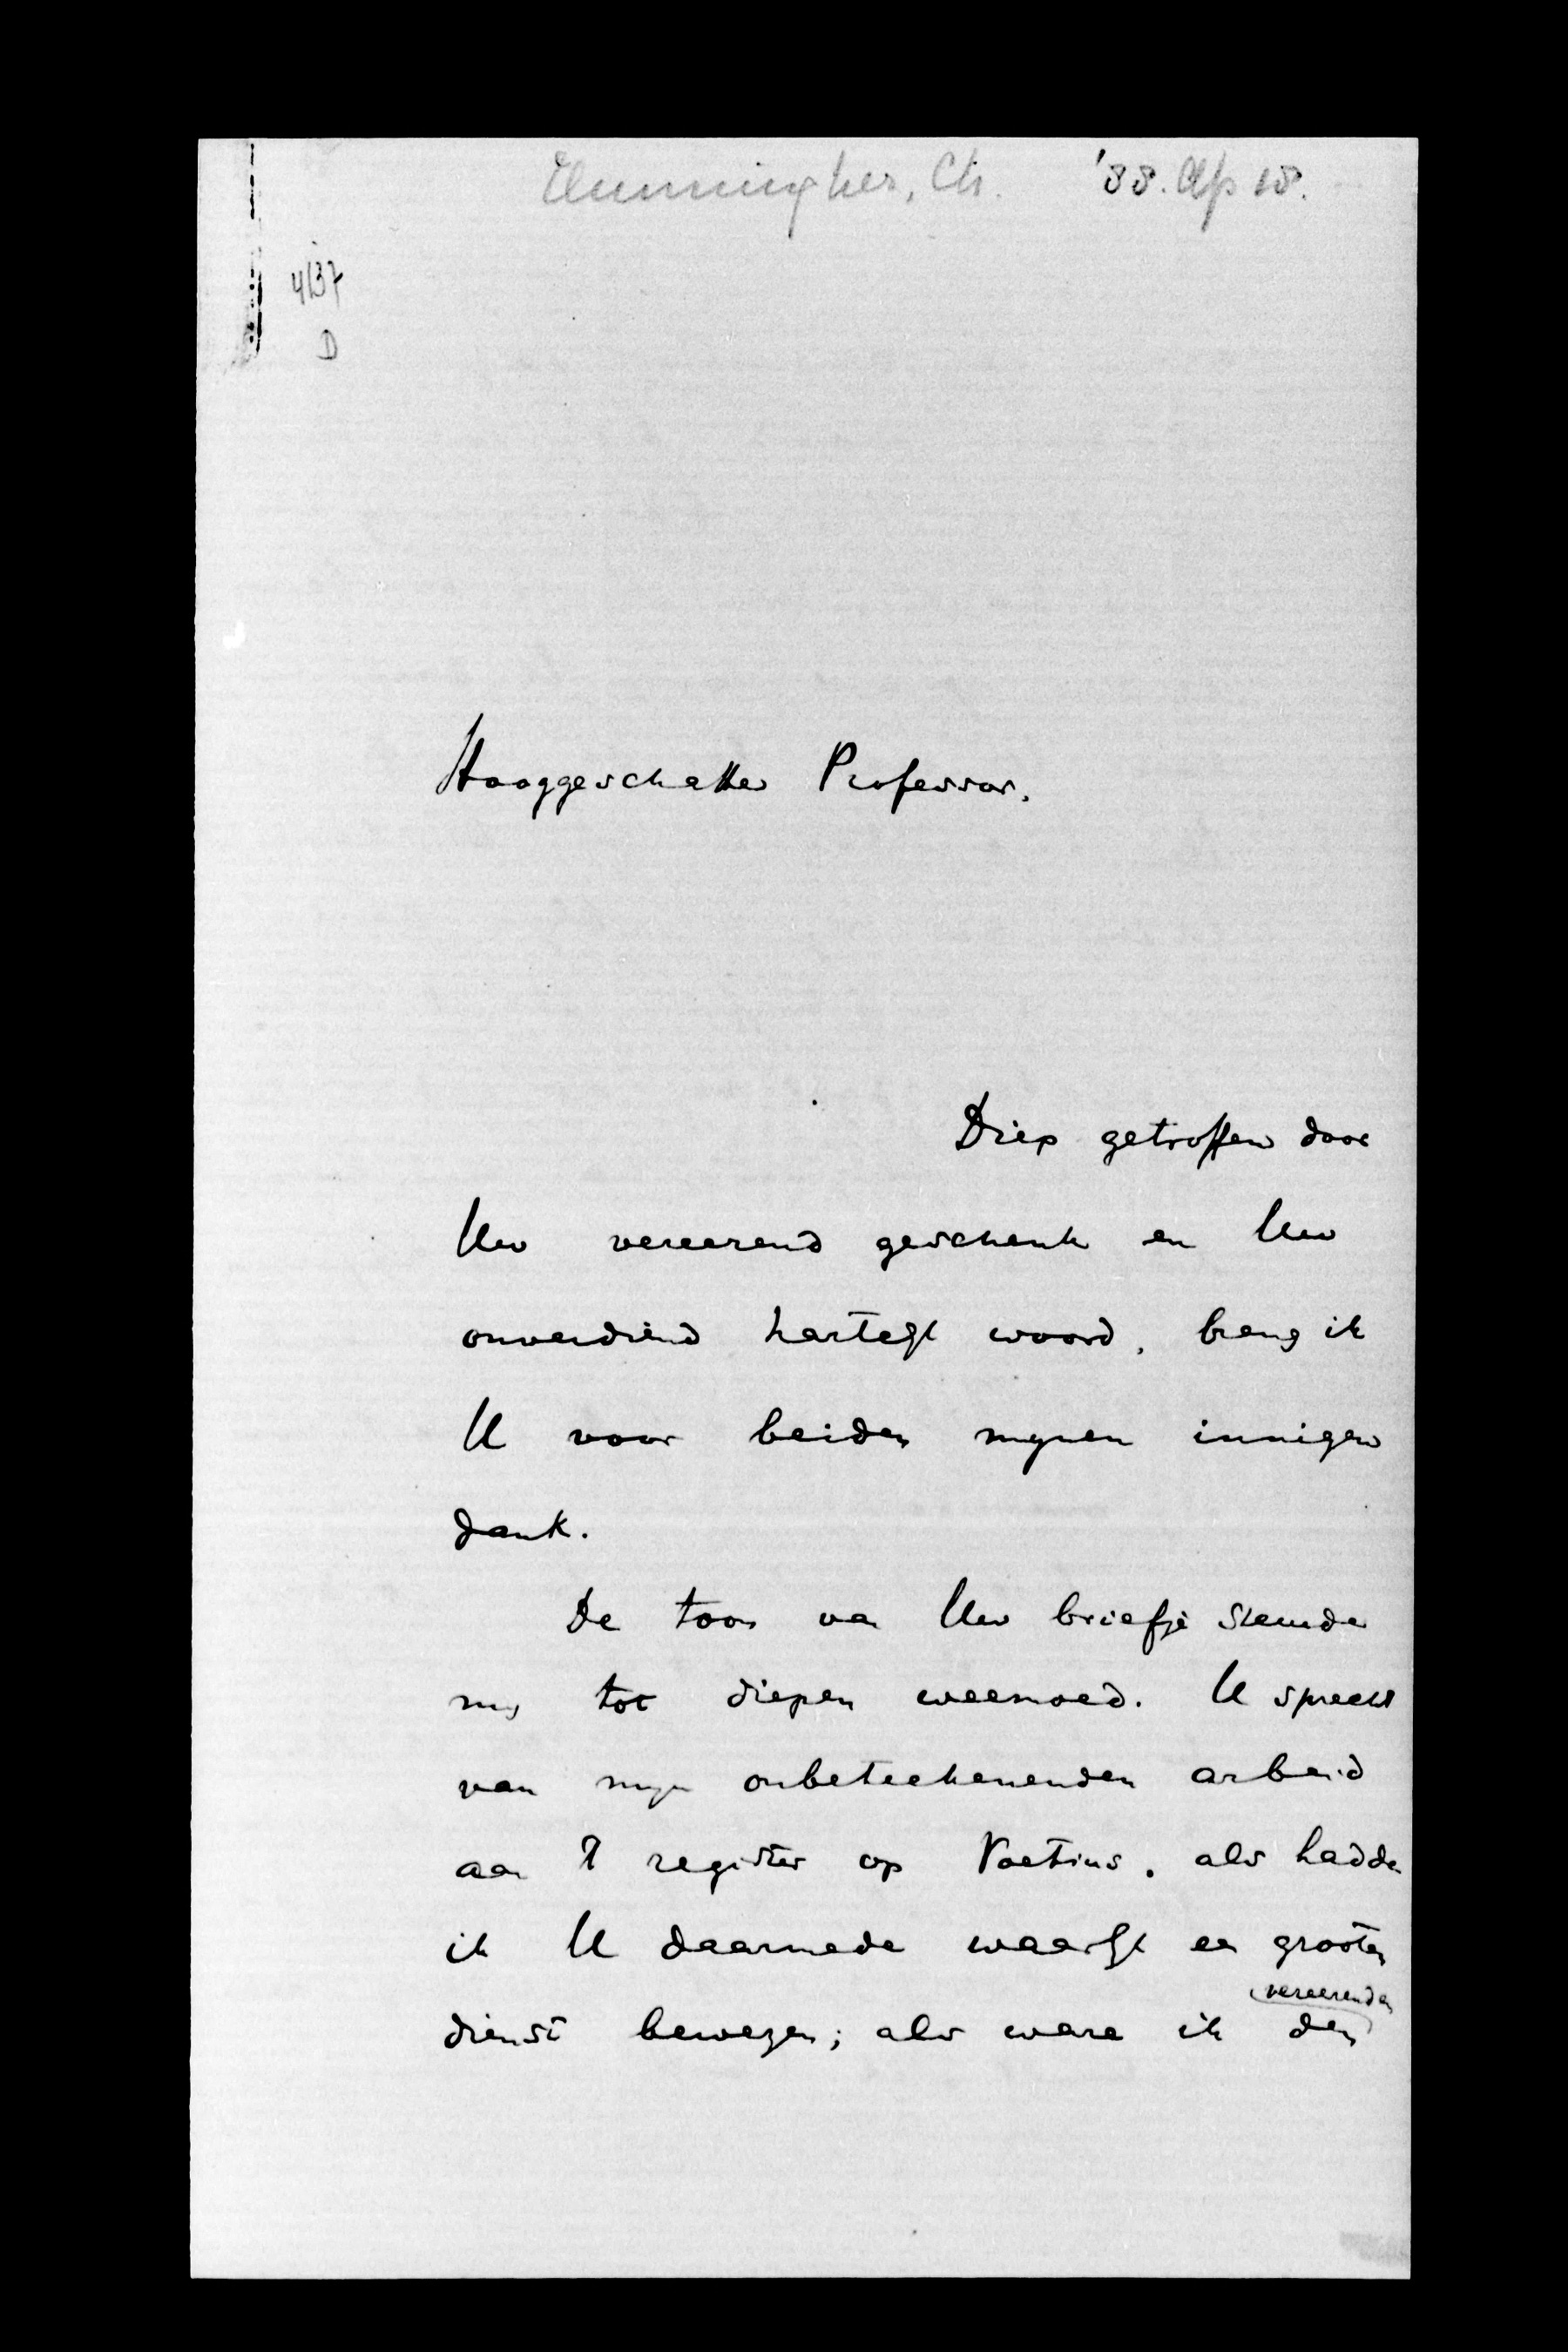 Hunningher, Ch. '88. Ap 18.
4137
D
Hooggeschatte Professor.
Diep getroffen door
Uw vereerend geschenk en Uw
onverdiend hartelijk woord, breng ik
U voor beiden mijnen innigen
dank.
De toon van Uw briefje stemde
mij tot diepen weemoed. U spreekt
van mijn onbeteekenenden arbeid
aan 't register op Voetius, als hadde
ik U daarmede waarlijk een grooten
vereerenden
dienst bewezen; als ware ik den